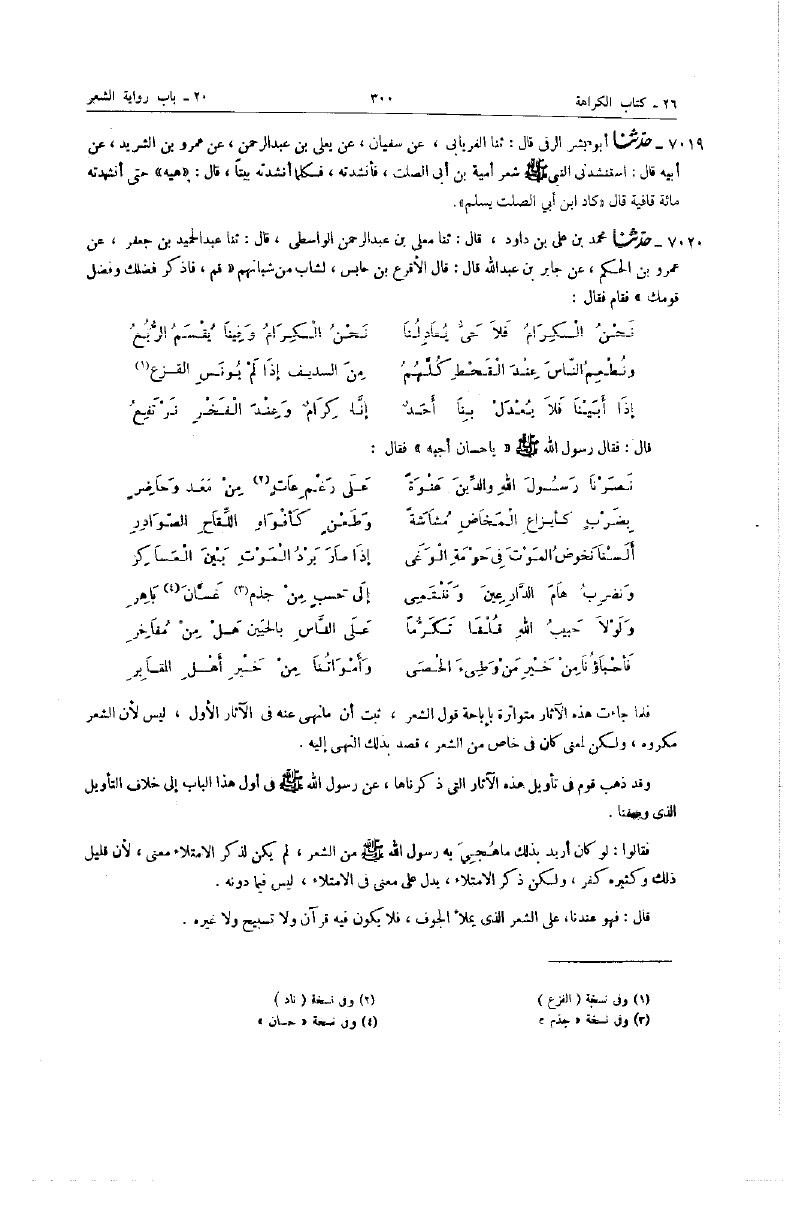 ٢٦ ـ كتاب الكراهة ٣٠٠ ٢٠ ـ باب رواية الشعر
٧٠١٩ ـ حدثنا أبو بشر الرقى قال : ثنا الفريابى ، عن سفيان ، عن يعلى بن عبدالرحمن ، عن عمرو بن الشريد ، عن
أبيه قال : استنشدنى النبى ﷺ شعر أمية بن أبى الصلت ، فأنشدته ، فكلما أنشدته بيتاً ، قال : «هيه» حتى أنشدته
مائة قافية قال «كاد ابن أبي الصلت يسلم».
٧٠٢٠ ـ حدثنا محمد بن على بن داود ، قال : ثنا معلى بن عبدالرحمن الواسطى ، قال : ثنا عبدالحميد بن جعفر ، عن
عمرو بن الحكم ، عن جابر بن عبدالله قال : قال الأقرع بن حابس ، لشاب من شبانهم « قم ، فاذكر فضلك وفضل
قومك » فقام فقال :
نَحْنُ الْكِرَامُ فَلاَ حَىٌّ يُعَادِلُنَا نَحْنُ الْكِرَامُ وَفِينَا يُقْسَمُ الرُّبُعُ
وَنُطْعِمُ النَّاسَ عِنْدَ الْقَحْطِ كُلَّهُمُ مِنَ السديف إذَا لَمْ يُونَسِ القَزَعُ(١)
إذَا أَبَيْنَا فَلاَ يَعْدِلْ بِنَا أَحَدٌ إنَّا كِرَامٌ وَعِنْدَ الْفَخْرِ نَرْتَفِعُ
قال : فقال رسول الله ﷺ « ياحسان أجبه » فقال :
نَصَرْنَا رَسُولَ اللهِ والدِّينَ عَنْوَةً عَلَى رَغْمِ عَاتٍ(٢) مِنْ مَعَد وَحَاضِرِ
بِضَرْبٍ كَأيزَاعِ الْمَخَاضِ مُشَاشَةً وَطَعْنٍ كَأَفْوَاهِ اللِّقَاحِ الصَّوَادِرِ
أَلَسْنَا نَخُوضُ الْمَوْتَ فِى حَوْمَةِ الْوَغَى إذَا صَارَ بَرْدُ الْمَوْتِ بَيْنَ الْعَسَاكِرِ
وَنَضْرِبُ هَامَ الدَّارِعِينَ وَنَنْتَمِى إلَى حَسَبٍ مِنْ جذم(٣) غَسَّانَ(٤) بَاهِرِ
وَلَوْلاَ حَبِيبُ اللهِ قُلْنَا تَكَرُّمًا عَلَى النَّاسِ بِالْحَيَّيْنِ هَلْ مِنْ مُفَاخِرِ
فَأَحْيَاؤُنَا مِنْ خَيْرِ مَنْ وَطِىءَ الْحَصَى وَأَمْوَاتُنَا مِنْ خَيْرِ أَهْلِ المَقَابِرِ
فلما جاءت هذه الآثار متواترة بإباحة قول الشعر ، ثبت أن مانهى عنه فى الآثار الأول ، ليس لأن الشعر
مكروه ، ولكن لمعنى كان فى خاص من الشعر ، قصد بذلك النهى إليه .
وقد ذهب قوم فى تأويل هذه الآثار التى ذكرناها ، عن رسول الله ﷺ فى أول هذا الباب إلى خلاف التأويل
الذى وصفنا .
فقالوا : لو كان أريد بذلك ماهُجِىَ به رسول الله ﷺ من الشعر ، لم يكن لذكر الامتلاء معنى ، لأن قليل
ذلك وكثيره كفر ، ولكن ذكر الامتلاء ، يدل على معنى فى الامتلاء ، ليس فيما دونه .
قال : فهو عندنا، على الشعر الذى يملأ الجوف ، فلا يكون فيه قرآن ولا تسبيح ولا غيره .
(١) وفى نسخة ( الفزع ) (٢) وفى نسخة ( ناد )
(٣) وفى نسخة « جذم » (٤) وفى نسخة « حسان »